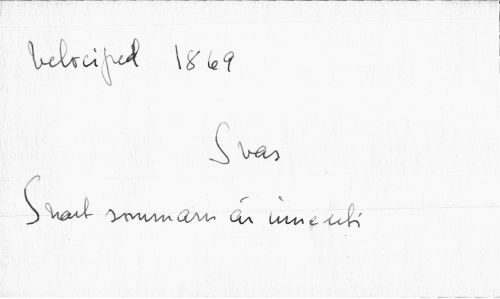 Velociped 1869
Svas
Snart sommarn är inne uti